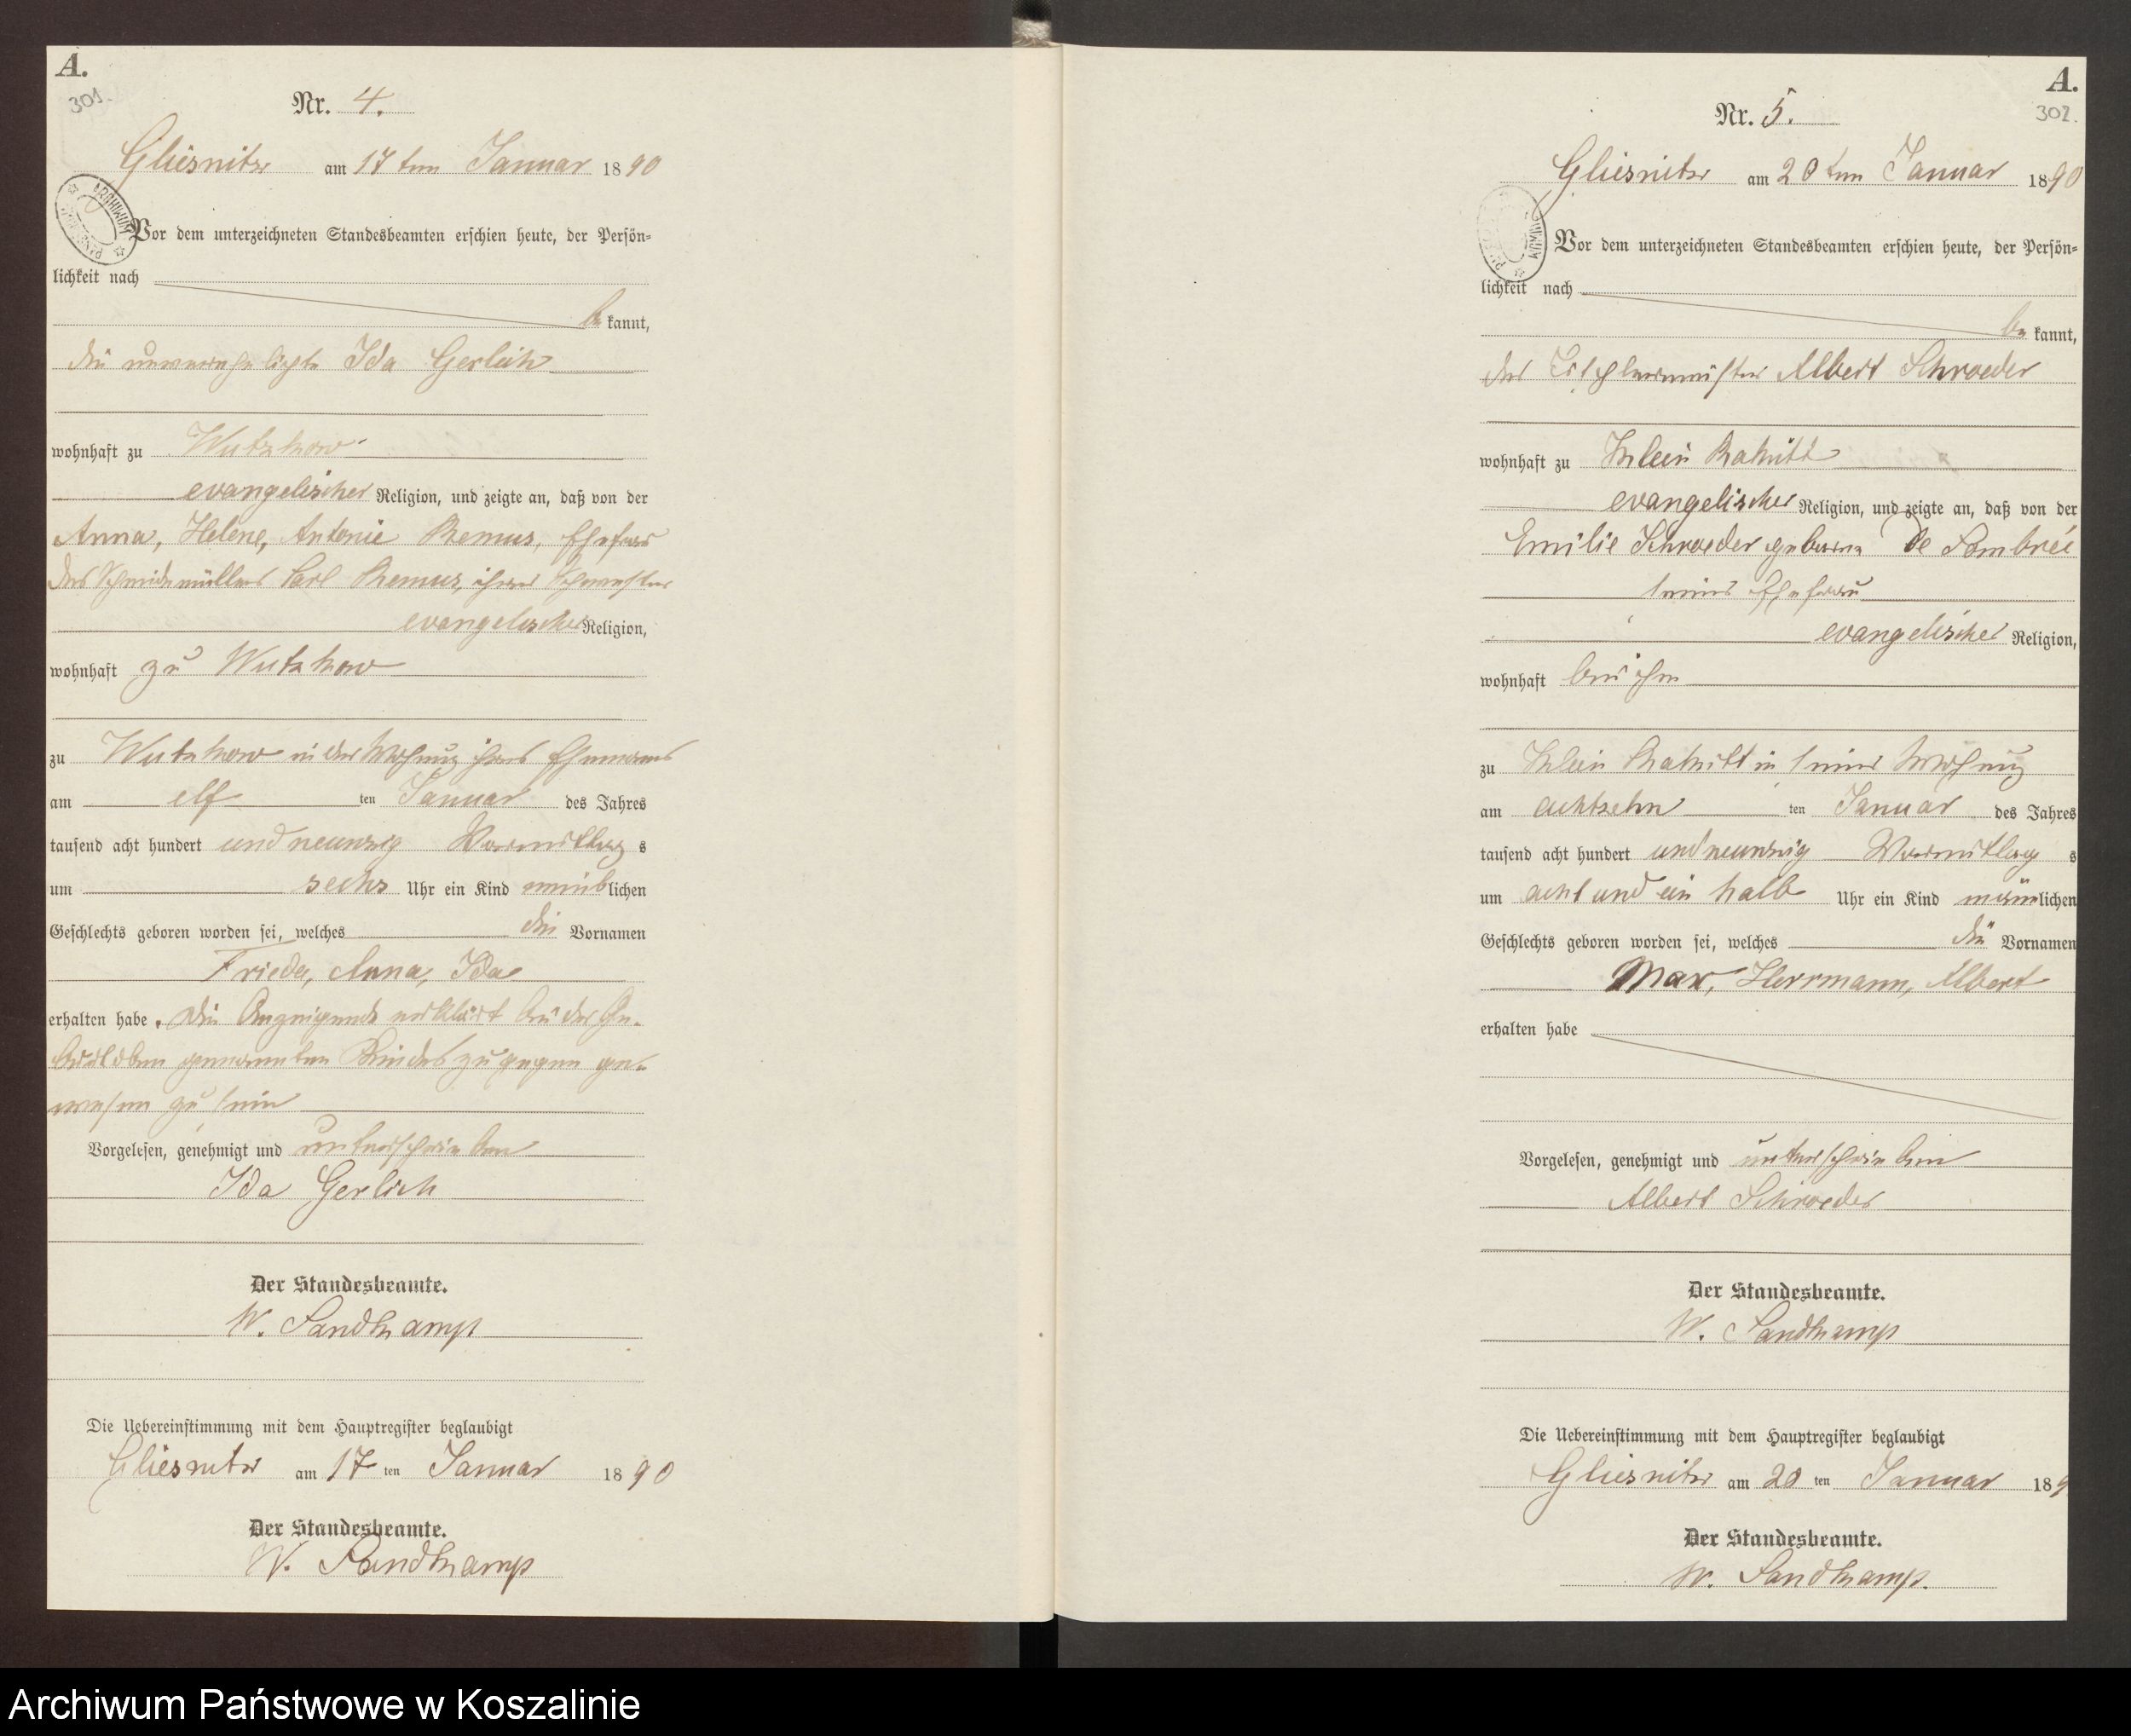 A.
301.
Nr. 4.
Gliesnitz am 17ten Januar 1890
Vor dem unterzeichneten Standesbeamten erschien heute, der Persön-
lichkeit nach
be kannt,
die unverehelichte Ida Gerlich
wohnhaft zu Wutzkow
evangelischer Religion, und zeigte an, daß von der
Anna, Helene, Antonie Remus, Ehefrau
des Schneidemüllers Carl Remus, ihrer Schwester
evangelischer Religion,
wohnhaft zu Wutzkow
zu Wutzkow in der Wohnung ihres Ehemanns
am elf ten Januar des Jahres
tausend acht hundert und neunzig Vormittag s
um sechs Uhr ein Kind weiblichen
Geschlechts geboren worden sei, welches die Vornamen
Frieda, Anna, Ida
erhalten habe. Die Anzeigende erklärt bei der Ge-
burt oben genannten Kindes zugegen ge-
wesen zu sein
Vorgelesen, genehmigt und unterschrieben
Ida Gerlich
Der Standesbeamte.
W. Sandkamp
Die Uebereinstimmung mit dem Hauptregister beglaubigt
Gliesnitz am 17 ten Januar 1890
Der Standesbeamte.
W. Sandkamp
A.
302.
Nr. 5.
Gliesnitz am 20ten Januar 1890
Vor dem unterzeichneten Standesbeamten erschien heute, der Persön-
lichkeit nach
be kannt,
der Tischlermeister Albert Schroeder
wohnhaft zu Klein Rakitt
evangelischer Religion, und zeigte an, daß von der
Emilie Schroeder geborene De Sombreé
seiner Ehefrau
evangelischer Religion,
wohnhaft bei ihm
zu Klein Rakitt in seiner Wohnung
am achtzehn ten Januar des Jahres
tausend acht hundert und neunzig Vormittag s
um acht und ein halb Uhr ein Kind männlichen
Geschlechts geboren worden sei, welches die Vornamen
Max, Herrmann, Albert
erhalten habe
Vorgelesen, genehmigt und unterschrieben
Albert Schroeder
Der Standesbeamte.
W. Sandkamp
Die Uebereinstimmung mit dem Hauptregister beglaubigt
Gliesnitz am 20 ten Januar 189
Der Standesbeamte.
W. Sandkamp.
Archiwum Państwowe w Koszalinie